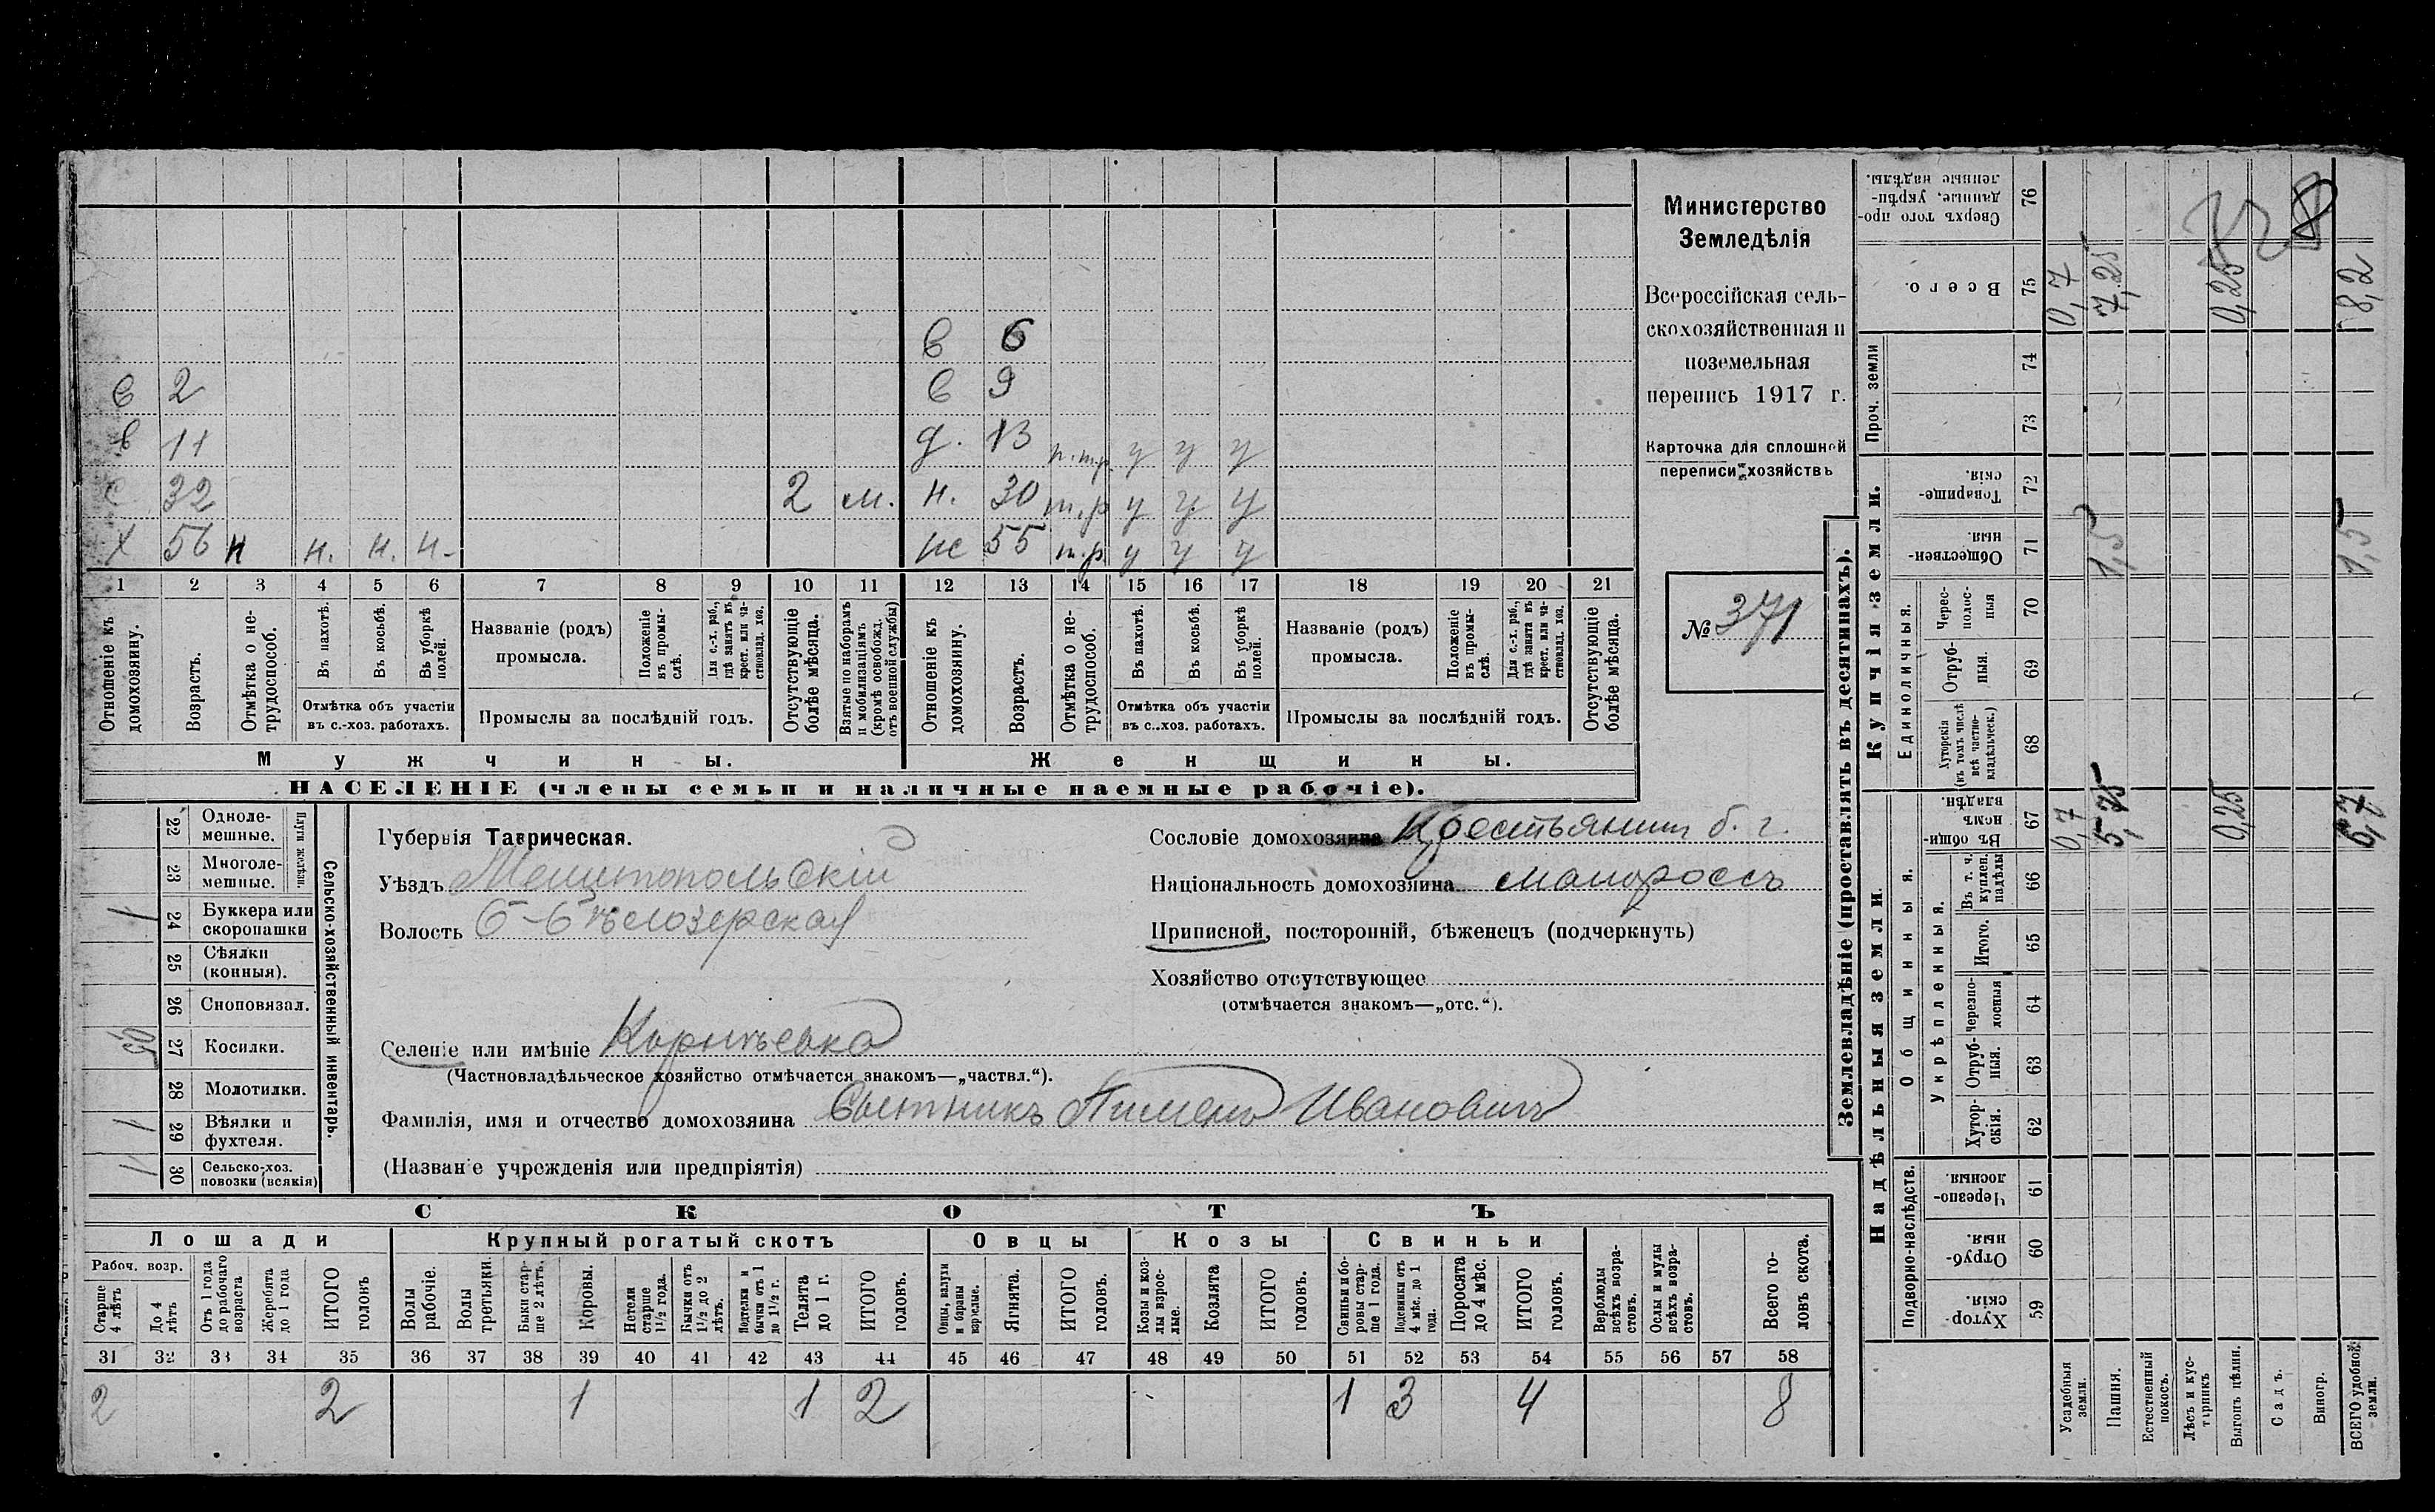 в 6
в 2 в 9
в 11 д. 13 п.тр. у у у
с 32 2 м. н. 30 т.р у у у
х 56 н н. н. н. же 55 т.р. у у у
1 2 3 4 5 6 7 8 9 10 11 12 13 14 15 16 17 18 19 20 21
Отношеніе къ домохозяину.
Возрастъ.
Отмѣтка о не-трудоспособ.
Въ пахотѣ.
Въ косьбѣ.
Въ уборкѣ полей.
Отмѣтка объ участіи въ с.-хоз. работахъ.
Названіе (родъ) промысла.
Положеніе въ промы-слѣ.
Для с.-х. раб., гдѣ занятъ въ крест. или ча-стновлад. хоз.
Промыслы за послѣдній годъ.
Отсутствующіе болѣе мѣсяца.
Взятые по наборамъ и мобилизаціямъ (кромѣ освобожд. отъ военной службы)
Отношеніе къ домохозяину.
Возрастъ.
Отмѣтка о не-трудоспособ.
Въ пахотѣ.
Въ косьбѣ.
Въ уборкѣ полей.
Отмѣтка объ участіи въ с.-хоз. работахъ.
Названіе (родъ) промысла.
Положеніе въ промы-слѣ.
Для с.-х. раб., гдѣ занята въ крест. или ча-стновлад. хоз.
Промыслы за послѣдній годъ.
Отсутствующіе болѣе мѣсяца.
Мужчины. Женщины.
НАСЕЛЕНІЕ (члены семьи и наличные наемные рабочіе).
Министерство
Земледѣлія
Всероссійская сель-
скохозяйственная и
поземельная
перепись 1917 г.
Карточка для сплошной
переписи хозяйствъ
№ 371
Сельско-хозяйственный инвентарь.
Плуги желѣзн.
22 Одноле-мешные.
23 Многоле-мешные.
1 24 Буккера или скоропашки
25 Сѣялки (конныя).
26 Сноповязал.
27 Косилки.
28 Молотилки.
1 29 Вѣялки и фухтеля.
1 30 Сельско-хоз. повозки (всякія)
Губернія Таврическая.
Уѣздъ Мелитопольскій
Волость Б-Бѣлозерская
Селеніе или имѣніе
(Частновладѣльческое хозяйство отмѣчается знакомъ—„частвл.“).
Фамилія, имя и отчество домохозяина Сытникъ Пименъ Ивановичъ
(Названіе учрежденія или предпріятія)
Сословіе домохозяина Крестьянин б. г.
Національность домохозяина малороссъ
Приписной, посторонній, бѣженецъ (подчеркнуть)
Хозяйство отсутствующее
(отмѣчается знакомъ—„отс.“).
СКОТЪ
Лошади Крупный рогатый скотъ Овцы Козы Свиньи
Рабоч. возр.
Старше 4 лѣтъ
До 4 лѣтъ
Отъ 1 года до рабочаго возраста
Жеребята до 1 года
ИТОГО головъ
Волы рабочіе.
Волы третьяки.
Быки стар-ше 2 лѣтъ.
Коровы.
Нетели старше 1½ года.
Бычки отъ 1½ до 2 лѣтъ.
Подтелки и бычки отъ 1 до 1½ г.
Телята до 1 г.
ИТОГО головъ.
Овцы, валухи и бараны взрослые.
Ягнята.
ИТОГО головъ.
Козы и коз-лы взрос-лые.
Козлята
ИТОГО головъ.
Свиньи и бо-ровы стар-ше 1 года.
Подсвинки отъ 4 мѣс. до 1 года.
Поросята до 4 мѣс.
ИТОГО головъ.
Верблюды всѣхъ возра-стовъ.
Ослы и мулы всѣхъ возра-стовъ.
Всего го-ловъ скота.
31 32 33 34 35 36 37 38 39 40 41 42 43 44 45 46 47 48 49 50 51 52 53 54 55 56 57 58
2 2 1 1 2 1 3 4 8
Землевладѣніе (проставлять въ десятинахъ).
Надѣльныя земли. Купчія земли. Проч. земли
Подворно-наслѣдств. Общинныя. Укрѣпленныя. Единоличныя.
Хутор-скія. 59
Отруб-ныя. 60
Черезпо-лосныя. 61
Хутор-скія. 62
Отруб-ныя. 63
Черезпо-лосныя 64
Итого. 65
Въ т. ч. куплен. надѣлы 66
Въ общин-номъ владѣн. 67
Хуторскія (въ томъ числѣ всѣ частно-владѣльческ.) 68
Отруб-ныя. 69
Черес-полос-ныя 70
Обществен-ныя. 71
Товарище-скія. 72
73
74
Всего. 75
Сверхъ того про-данные, укрѣп-ленные надѣлы. 76
Усадебныя земли. 0,7 0,7
Пашня. 5,75 1,5 7,25
Естественный покосъ.
Лѣсъ и кус-тарникъ
Выгонъ цѣлин. 0,25 0,25
Садъ.
Виногр.
ВСЕГО удобной земли. 6,7 1,5 8,2